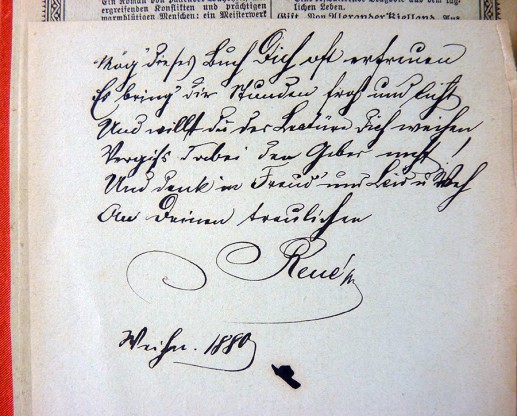 Ein Roman von
ergreifenden Konflikten und prächtigen
warmblütigen Menschen; ein Meisterwerk
lichen Leben.
Gift. Von Alexander Kielland. Aus
Mög' dieses Buch Dich oft erfreuen
Es bring' dir Stunden froh und licht
Und willst du der Lectüre Dich weihen
Vergiß dabei den Geber nicht!
Und denk' in Freud' und Leid u Weh
An Deinen treulichen
René
Weihn. 1880